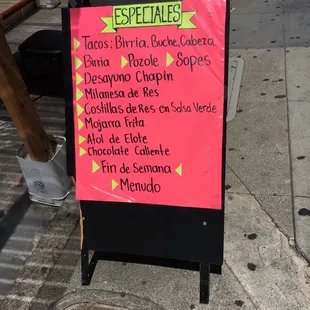 ESPECIALES
Tacos: Birria, Buche, Cabeza.
Birria Pozole Sopes
Desayuno Chapin
Milanesa de Res
Costillas de Res en Salsa Verde
Mojarra Frita
Atol de Elote
Chocolate Caliente
Fin de Semana
Menudo